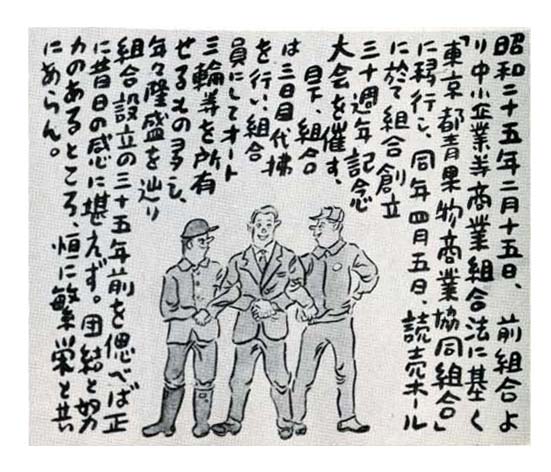 昭和二十五年二月十五日、前組合よ
り中小企業等商業組合法に基く
「東京都青果物商業協同組合」
に移行し、同年四月五日、読売ホール
に於て組合創立
三十週年記念
大会を催す、
目下、組合
は三日目代拂
を行い、組合
員にしてオート
三輪等を所有
せるもの多し、
年々隆盛を辿り
組合設立の三十五年前を偲べば正
に昔日の感に堪えず。団結と努
力のあるところ、恒に繁栄と共
にあらん。